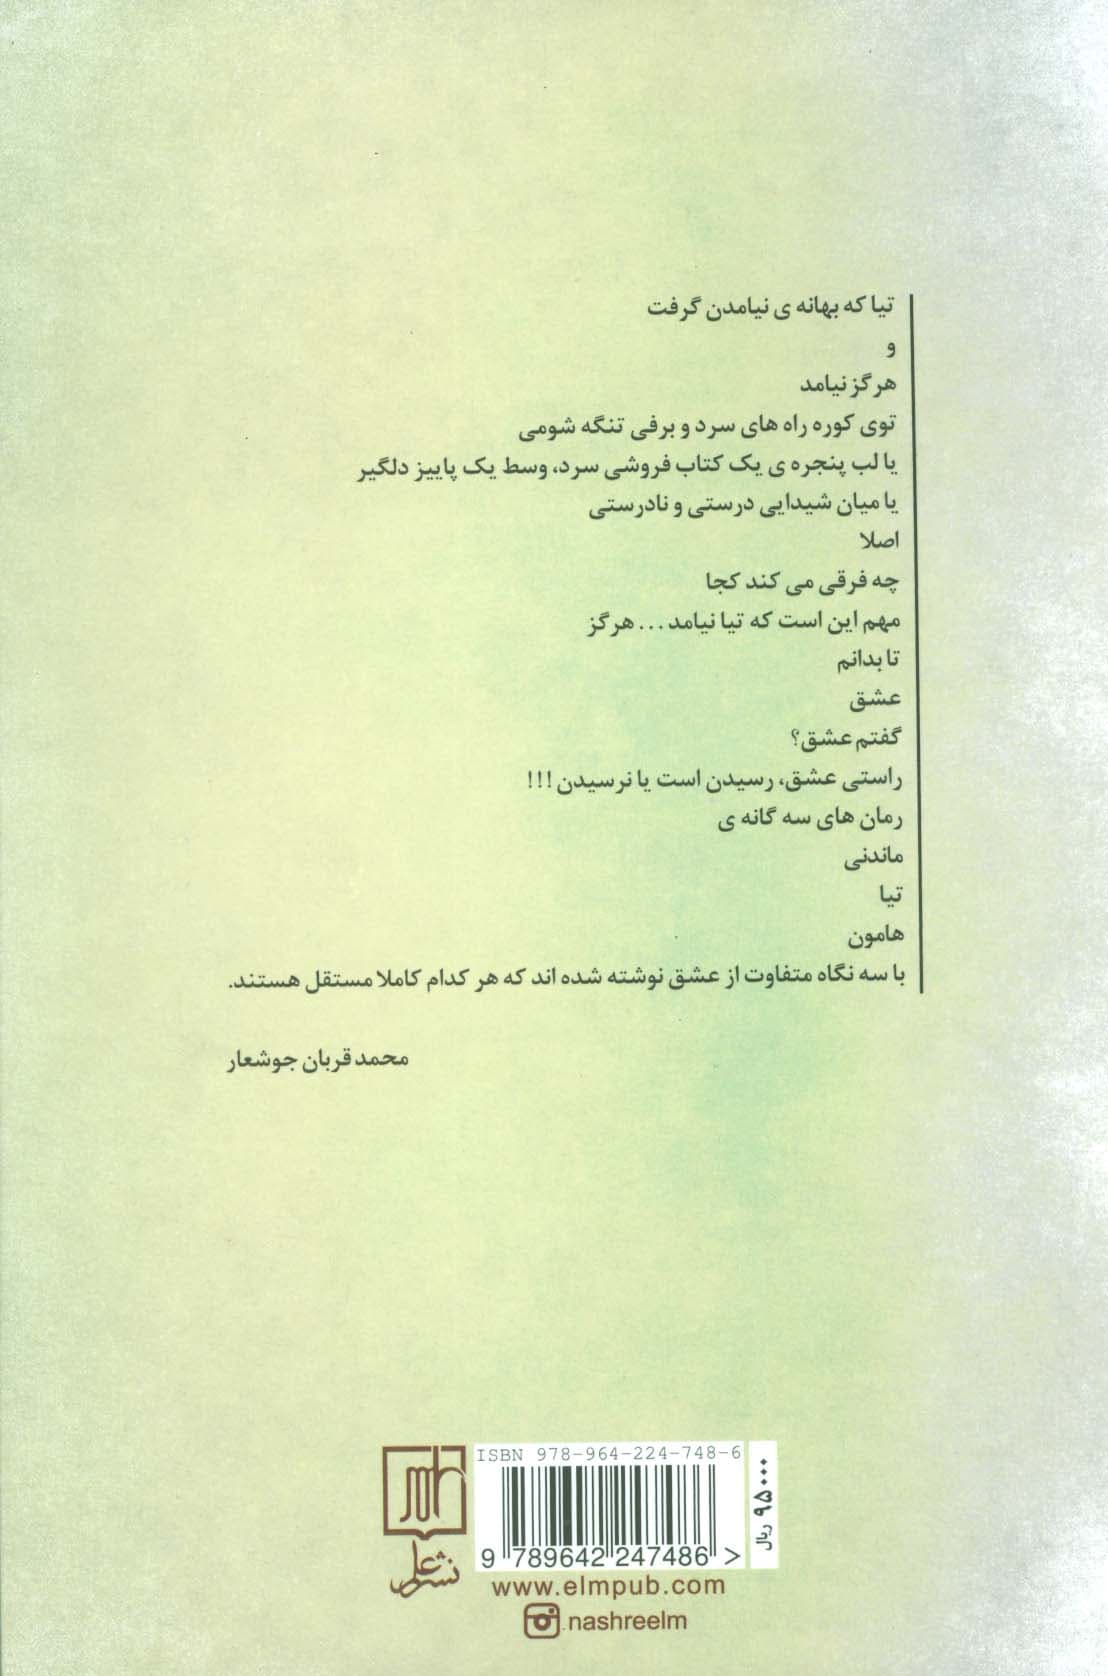 تیا که بهانه ی نیامدن گرفت
و
هرگز نیامد
توی کوره راه های سرد و برفی تنگه شومی
یا لب پنجره ی یک کتاب فروشی سرد، وسط یک پاییز دلگیر
یا میان شیدایی درستی و نادرستی
اصلا
چه فرقی می کند کجا
مهم این است که تیا نیامد... هرگز
تا بدانم
عشق
گفتم عشق؟
راستی عشق، رسیدن است یا نرسیدن!!!
رمان های سه گانه ی
ماندنی
تیا
هامون
با سه نگاه متفاوت از عشق نوشته شده اند که هر کدام کاملا مستقل هستند.
محمد قربان جوشعار
ISBN 978-964-224-748-6
9 789642 247486 >
۹۵۰۰۰ ریال
نشر علم
www.elmpub.com
nashreelm